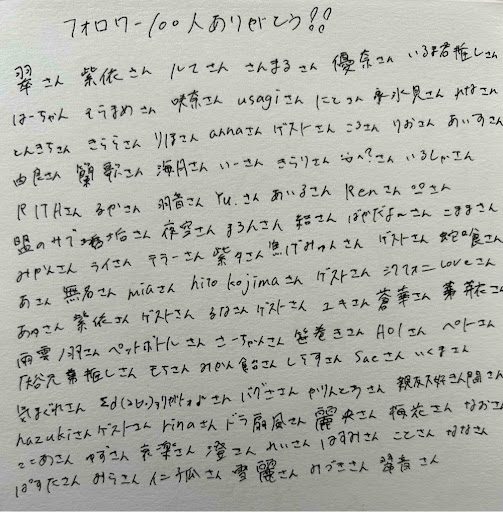 フォロワー100人ありがとう!!
翠さん 紫依さん ルてさん さんまるさん 優奈さん いるま君推しさん
はーちゃん そらまめさん 咲奈さん usagiさん にとさん 氷見さん みなさん
とんきちさん きららさん りほさん annaさん ゲストさん ころさん りおさん あいすさん
由良さん 蘭歌さん 海月さん いーさん きらりさん いるしゃさん
RITAさん るやさん 羽音さん Yu.さん あいるさん Renさん さん
盟のサブ垢さん 夜空さん まろんさん 知さん ぱやだよ〜さん こままさん
みかんさん ライさん テラーさん 紫夕さん 焦げみゅんさん ゲストさん 蛇喰さん
あさん 無名さん miaさん hito kojimaさん ゲストさん シクフォニloveさん
あゅさん 紫依さん ゲストさん るなさん ゲストさん ユキさん 蒼華さん さん
雨雲ノ羽さん ペットボトルさん さーちゃんさん 笹巻きさん AOIさん ペトさん
推しさん もちさん みかん食台さん しらすさん Saeさん いくまさん
気まぐれさん さん バグさん かりんとうさん 親友大好きさん
hazukiさん ゲストさん rinaさん ドラさん 扇風さん 麗央さん 梅花さん なおさん
ここあさん ゆずさん 哀楽さん 澄さん れいさん はすみさん ことさん ななさん
ぱすたさん みらさん イニ狐さん 雪麗さん みづきさん 翠音さん